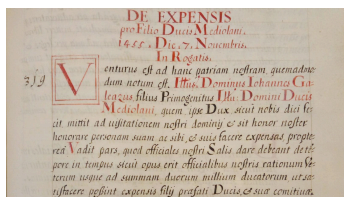 DE EXPENSIS
pro Filio Ducis Mediolani.
1455. Die. 7. Novembris.
In Rogatis.
319
Venturus est ad hanc patriam nostram, quemadmo
dum notum est. Illus. Dominus Iohannes Ga-
leazus, filius Primogenitus Illu: Domini Ducis
Mediolani, quem ipse Dux sicut nobis dici fe-
cit mittit ad visitationem nostri dominij & sit honor nostrum
honorare personam suam ac sibi, & suis facere expensas propte-
rea Vadit pars, quod officiales nostri Salis dare debeant de tē-
pore in tempus sicut opus erit officialibus nostris rationum Ve-
terum usque ad summam duorum millium ducatorum, ut sa-
tisfacere possint expensis filij prefati Ducis, & sua comitiva,